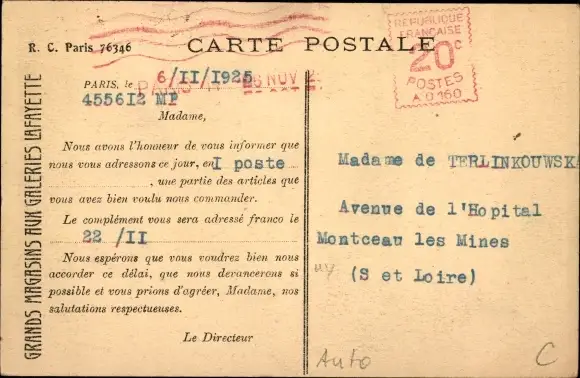 R. C. Paris 76346
CARTE POSTALE
REPUBLIQUE
FRANÇAISE
20c
POSTES
A 0160
GRANDS MAGASINS AUX GALERIES LAFAYETTE
PARIS, le 6/II/1925
6 NOV
455612 MP
Madame,
Nous avons l'honneur de vous informer que
nous vous adressons ce jour, en I poste
, une partie des articles que
vous avez bien voulu nous commander.
Le complément vous sera adressé franco le
22 /II
Nous espérons que vous voudrez bien nous
accorder ce délai, que nous devancerons si
possible et vous prions d'agréer, Madame, nos
salutations respectueuses.
Le Directeur
Madame de TERLINKOUWSKA
Avenue de l'Hopital
Montceau les Mines
(S et Loire)
Auto
C